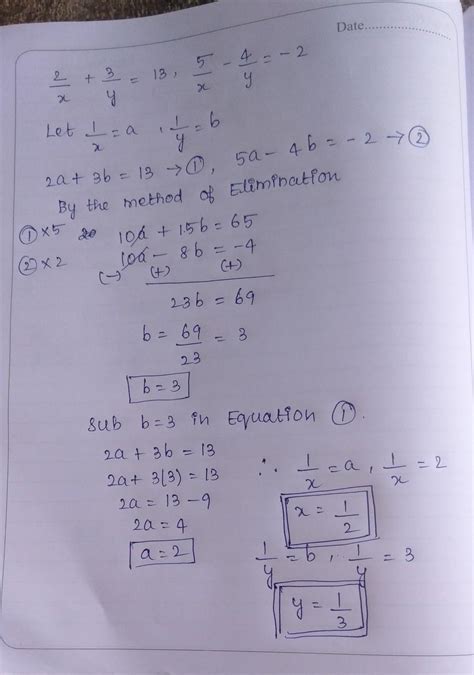 Date...........................
2/x + 3/y = 13, 5/x - 4/y = -2
Let 1/x = a , 1/y = b
2a + 3b = 13 → ①, 5a - 4b = -2 → ②
By the method of Elimination
①×5 10a + 15b = 65
②×2 10a - 8b = -4
(-) (+) (+)
23b = 69
b = 69/23 = 3
b = 3
Sub b=3 in Equation ①.
2a + 3b = 13
2a + 3(3) = 13
2a = 13 - 9
2a = 4
a = 2
∴ 1/x = a , 1/x = 2
x = 1/2
1/y = b , 1/y = 3
y = 1/3